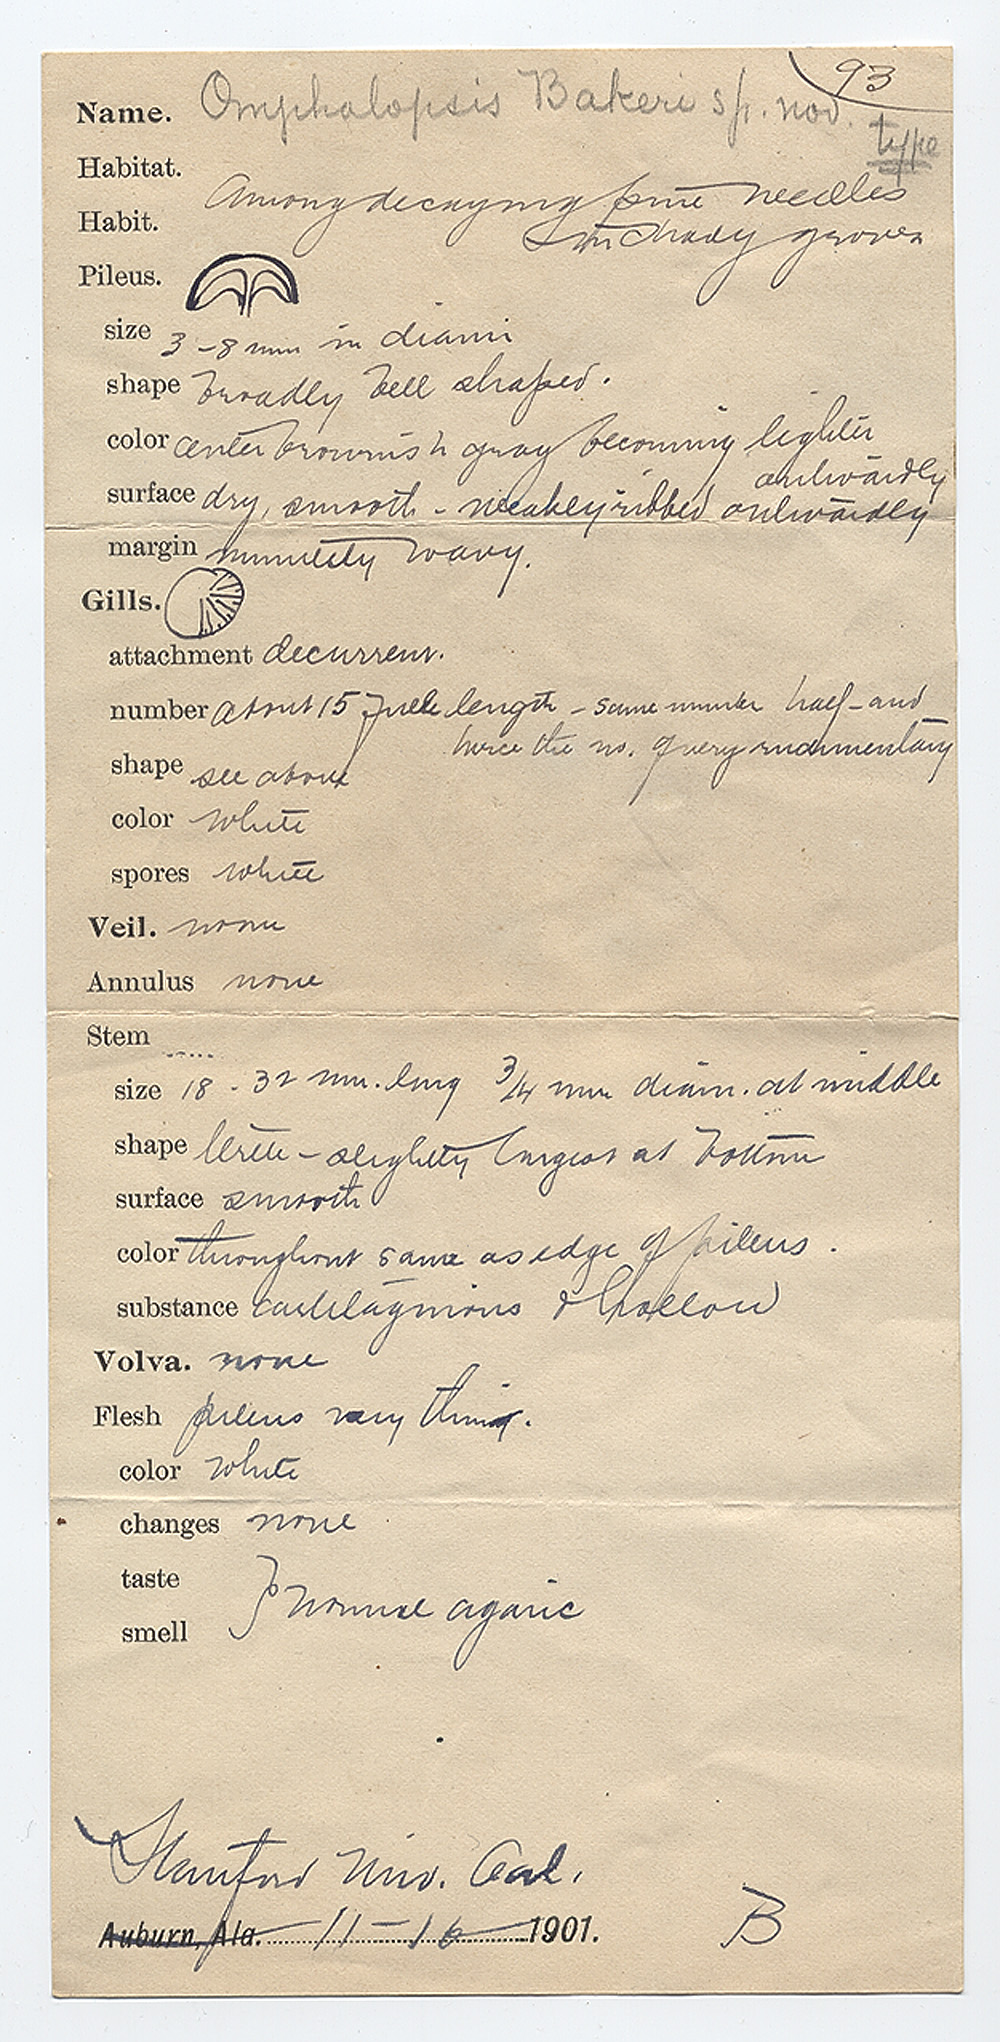 93
Name. Omphalopsis Bakeri sp. nov.
type
Habitat.
Among decaying pine needles
Habit.
in shady groves
Pileus.
size 3-8 mm in diam
shape broadly bell shaped.
color center brownish gray becoming lighter
outwardly
surface dry, smooth - weakly ribbed outwardly
margin minutely wavy.
Gills.
attachment decurrent.
number about 15 full length - same number half - and
twice the no. of very rudimentary
shape see above
color white
spores white
Veil. none
Annulus none
Stem
size 18 - 32 mm. long 3/4 mm diam. at middle
shape terete - slightly largest at bottom
surface smooth
color throughout same as edge of pileus.
substance cartilaginous & hollow
Volva. none
Flesh pileus very thin.
color white
changes none
taste
} normal agaric
smell
Stanford Univ. Cal.
Auburn, Ala. 11-16 1901.
B